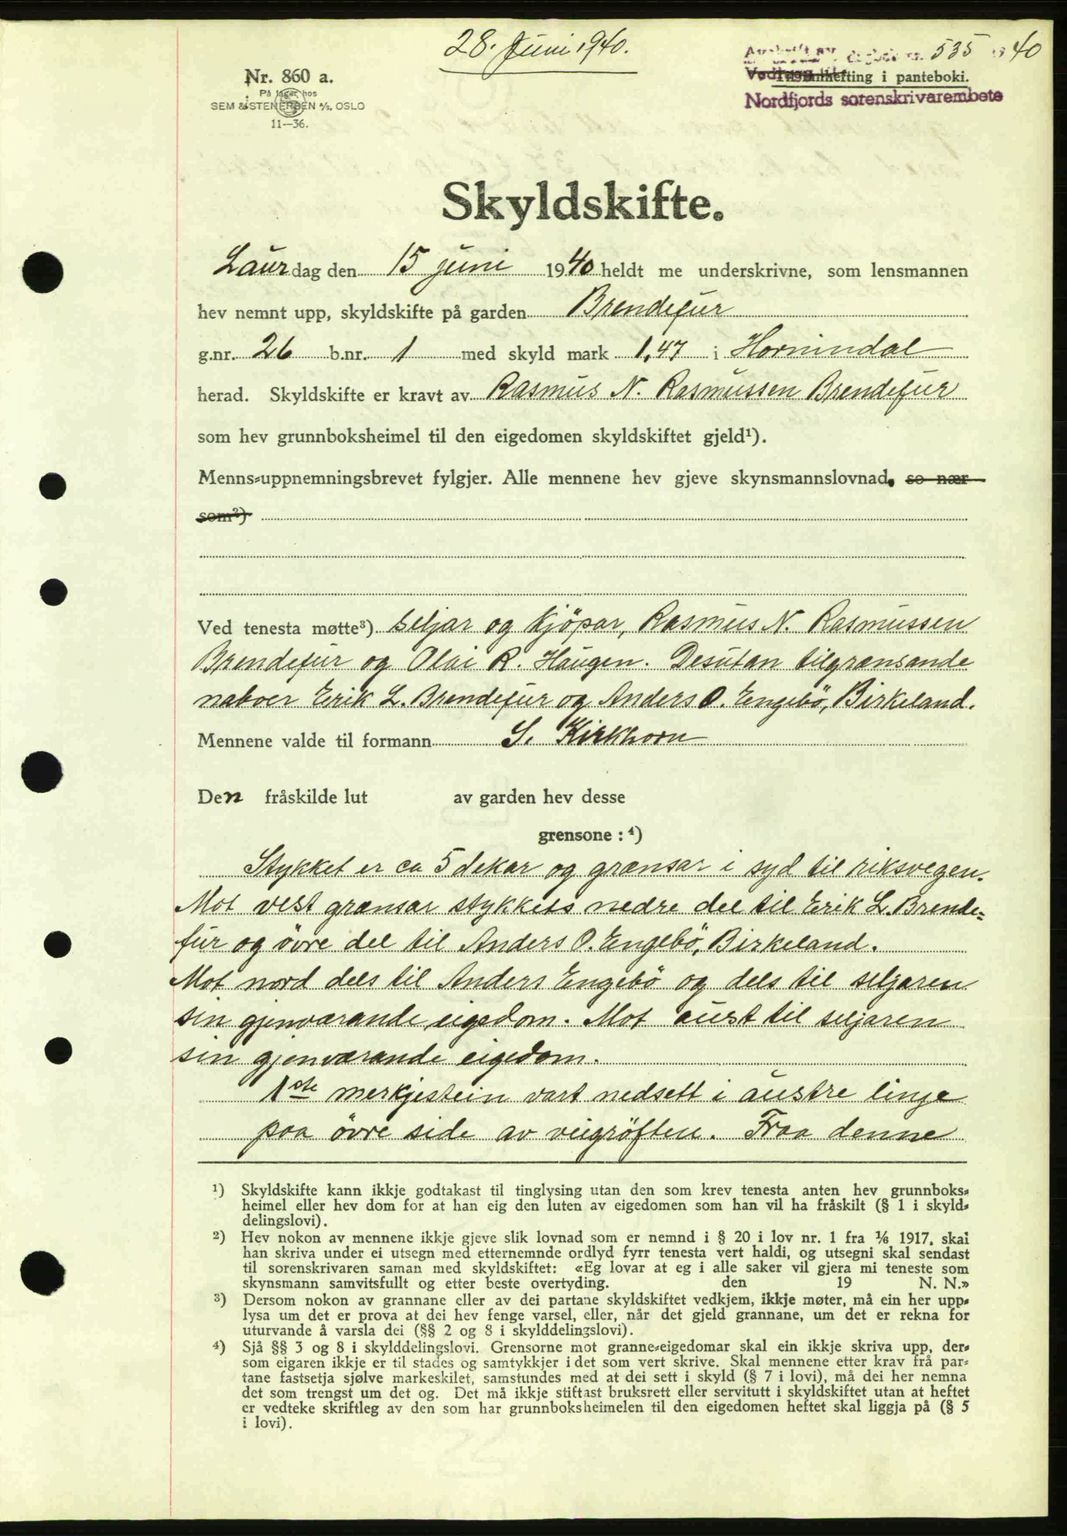 28. Juni 1940.
Avskrift av dagbok nr. 535 1940
Nr. 860 a.
På lager hos
SEM & STENERSEN A/S, OSLO
11—36.
til innhefting i panteboki.
Nordfjords sorenskrivarembete
Skyldskifte.
Laurdag den 15 juni 1940 heldt me underskrivne, som lensmannen
hev nemnt upp, skyldskifte på garden Brendefur
g.nr. 26 b.nr. 1 med skyld mark 1,47 i Hornindal
herad. Skyldskifte er kravt av Rasmus N. Rasmussen Brendefur
som hev grunnboksheimel til den eigedomen skyldskiftet gjeld¹).
Menns-uppnemningsbrevet fylgjer. Alle mennene hev gjeve skynsmannslovnad, so nær
som²)
Ved tenesta møtte³) seljar og kjöpar, Rasmus N. Rasmussen
Brendefur og Olai R. Haugen. Desutan tilgrænsande
naboer Erik L. Brendefur og Anders O. Engebö, Birkeland.
Mennene valde til formann S. Kirkhorn
Den fråskilde lut av garden hev desse
grensone: ⁴)
Stykket er ca 5 dekar og grænsar i syd til riksvegen.
Mot vest grænsar stykkets nedre del til Erik L. Brende=
fur og övre del til Anders O. Engebö, Birkeland.
Mot nord dels til Anders Engebö og dels til seljaren
sin gjenværande eigedom. Mot aust til seljaren
sin gjenværande eigedom.
1ste merkjestein vart nedsett i austre linje
paa övre side av veigröften. Fraa denne
¹) Skyldskifte kann ikkje godtakast til tinglysing utan den som krev tenesta anten hev grunnboks-
heimel eller hev dom for at han eig den luten av eigedomen som han vil ha fråskilt (§ 1 i skyld-
delingslovi).
²) Hev nokon av mennene ikkje gjeve slik lovnad som er nemnd i § 20 i lov nr. 1 fra ⅙ 1917, skal
han skriva under ei utsegn med etternemnde ordlyd fyrr tenesta vert haldi, og utsegni skal sendast
til sorenskrivaren saman med skyldskiftet: «Eg lovar at eg i alle saker vil gjera mi teneste som
skynsmann samvitsfullt og etter beste overtyding. den 19 N. N.»
³) Dersom nokon av grannane eller av dei partane skyldskiftet vedkjem, ikkje møter, må ein her upp-
lysa um det er prova at dei hev fenge varsel, eller, når det gjeld grannane, um det er rekna for
uturvande å varsla dei (§§ 2 og 8 i skylddelingslovi).
⁴) Sjå §§ 3 og 8 i skylddelingslovi. Grensorne mot granne-eigedomar skal ein ikkje skriva upp, der-
som eigaren ikkje er til stades og samtykkjer i det som vert skrive. Skal mennene etter krav frå par-
tane fastsetja sjølve markeskilet, samstundes med at dei sett i skyld (§ 7 i lovi), må dei her nemna
det som trengst um det og. Det må ikkje stiftast bruksrett eller servitutt i skyldskiftet utan at heftet
er vedteke skriftleg av den som har grunnboksheimelen til den eigedomen heftet skal liggja på (§ 5
i lovi).